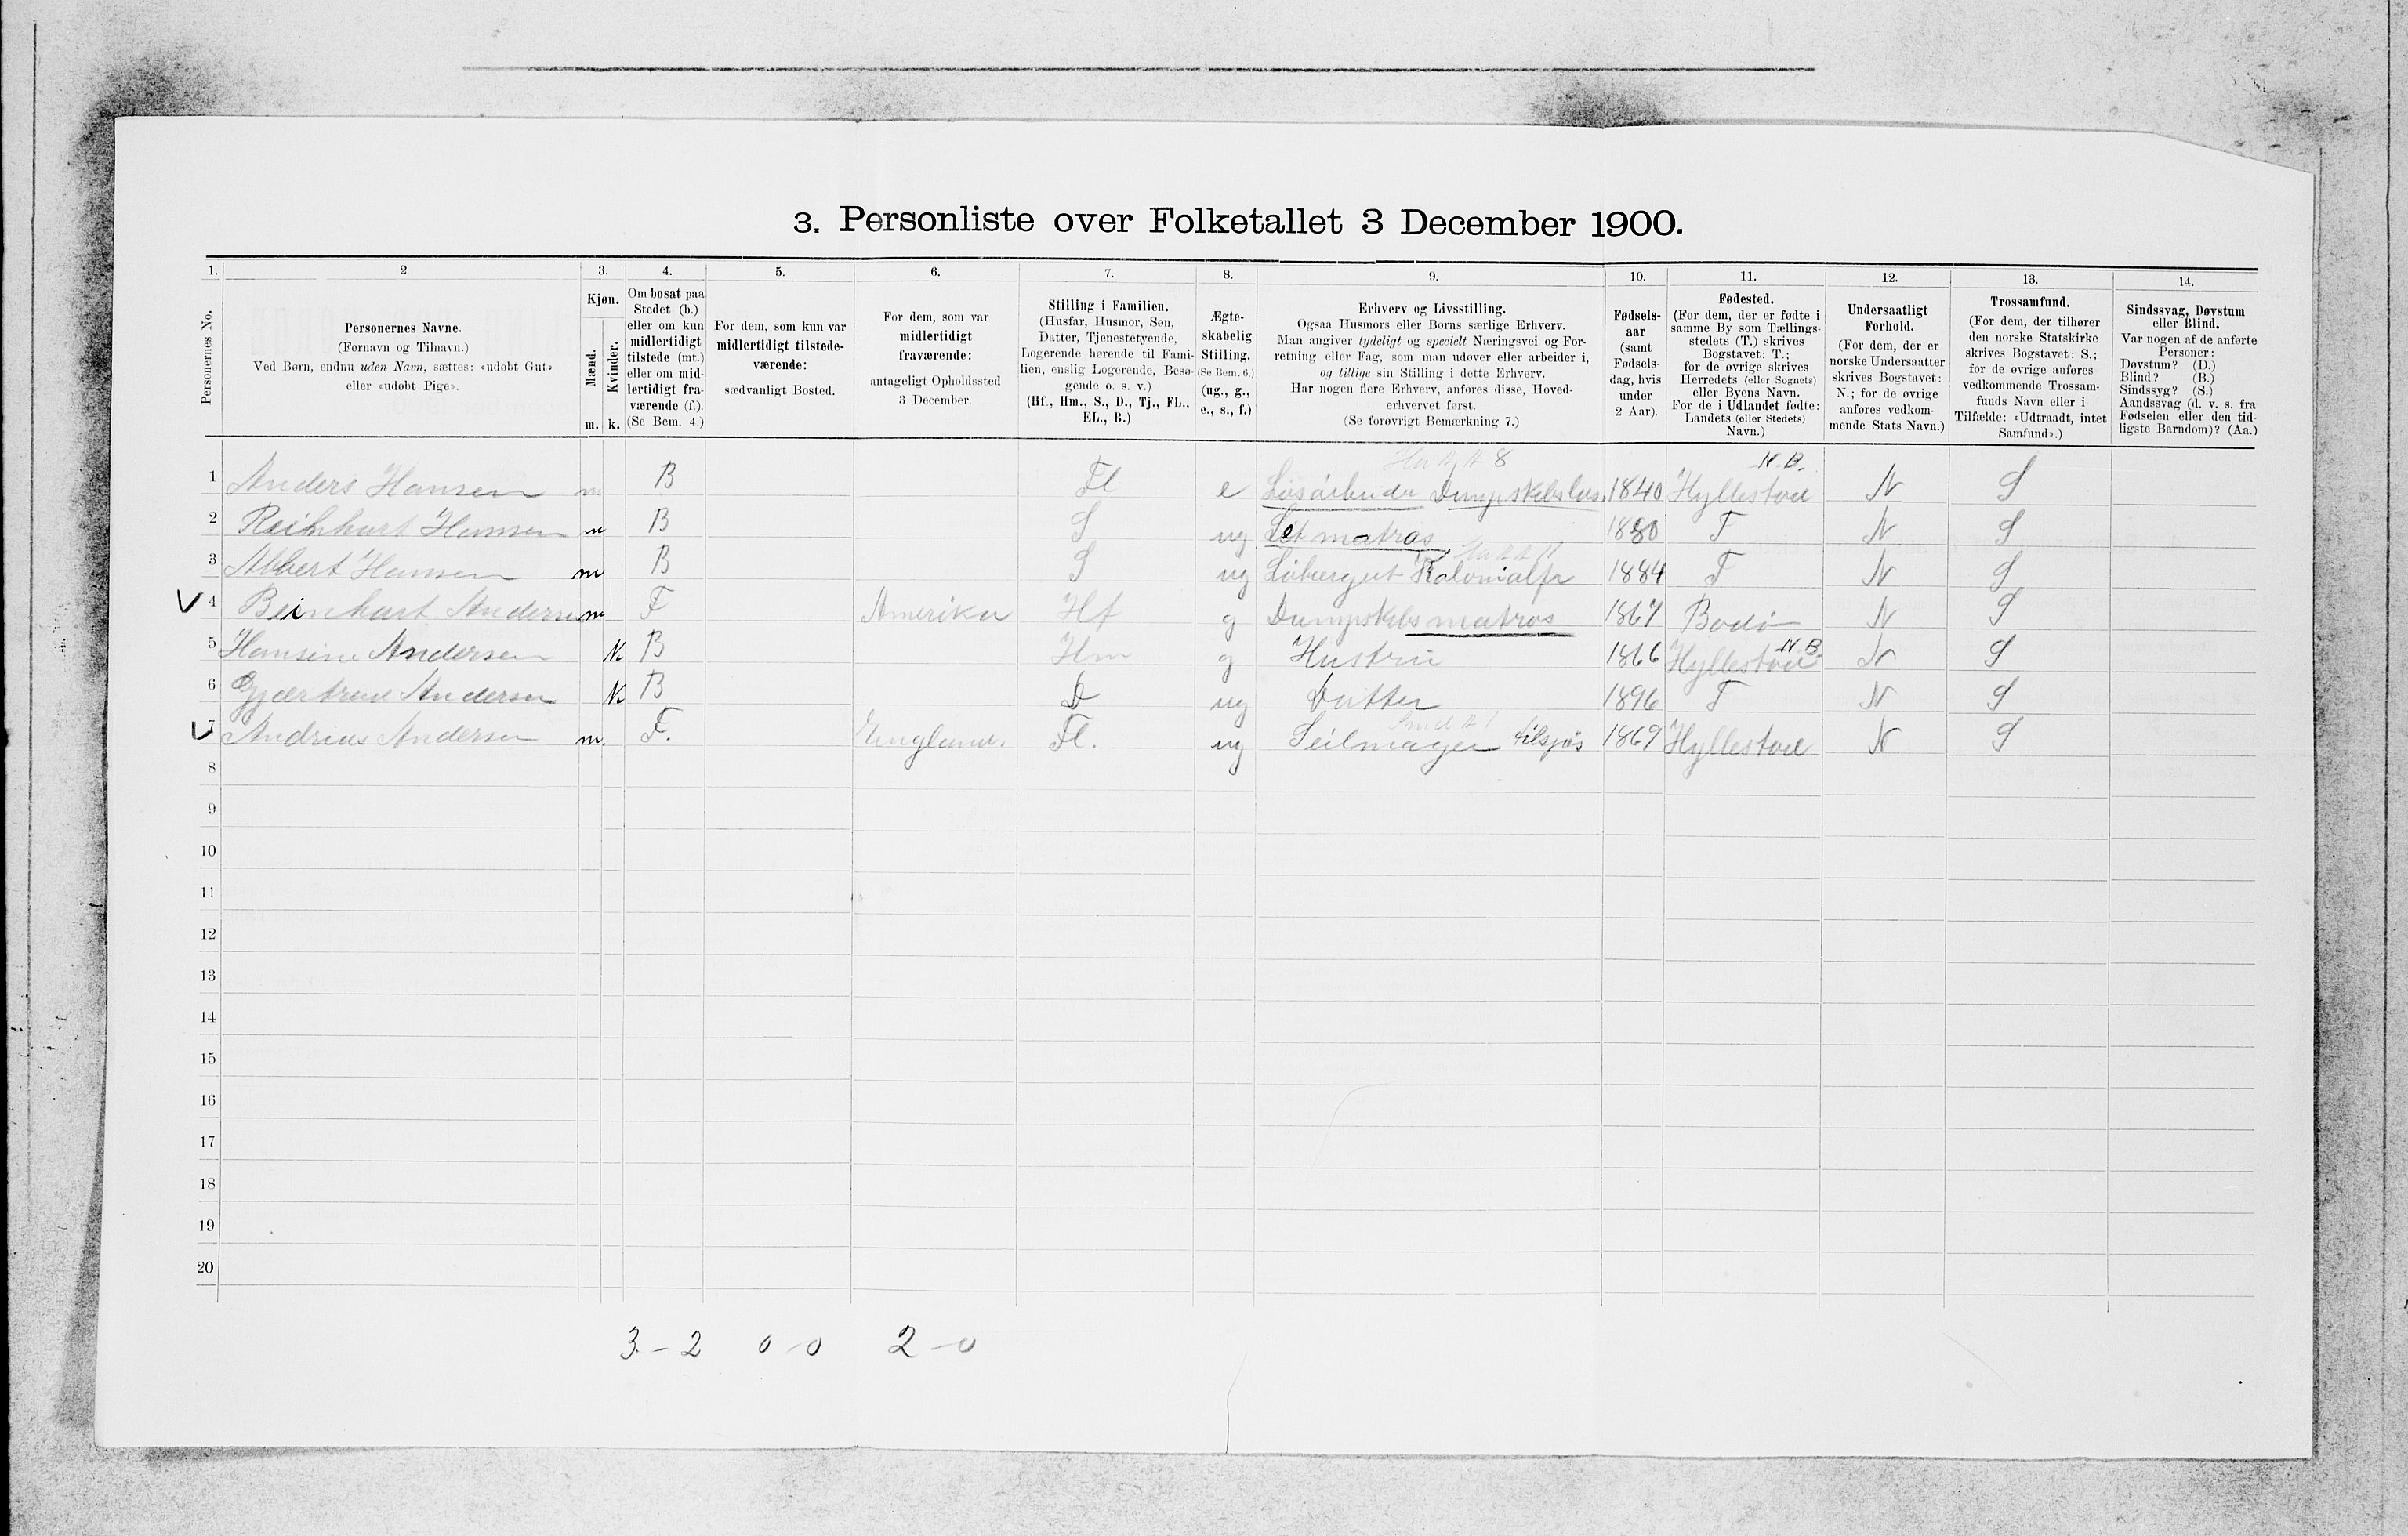 3. Personliste over Folketallet 3 December 1900.
1. 2 3. 4. 5. 6. 7. 8. 9. 10. 11. 12. 13. 14.
Personernes No.
Personernes Navne.
(Fornavn og Tilnavn.)
Ved Børn, endnu uden Navn, sættes: «udøbt Gut»
eller «udøbt Pige».
Kjøn.
Mænd.
Kvinder.
m. k.
Om bosat paa
Stedet (b.)
eller om kun
midlertidigt
tilstede (mt.)
eller om mid-
lertidigt fra-
værende (f.).
(Se Bem. 4.)
For dem, som kun var
midlertidigt tilstede-
værende:
sædvanligt Bosted.
For dem, som var
midlertidigt
fraværende:
antageligt Opholdssted
3 December.
Stilling i Familien.
(Husfar, Husmor, Søn,
Datter, Tjenestetyende,
Logerende hørende til Fami-
lien, enslig Logerende, Besø-
gende o. s. v.)
(Hf., Hm., S., D., Tj., FL.,
EL., B.)
Ægte-
skabelig
Stilling.
(Se Bem. 6.)
(ug., g.,
e., s., f.)
Erhverv og Livsstilling.
Ogsaa Husmors eller Børns særlige Erhverv.
Man angiver tydeligt og specielt Næringsvei og For-
retning eller Fag, som man udøver eller arbeider i,
og tillige sin Stilling i dette Erhverv.
Har nogen flere Erhverv, anføres disse, Hoved-
erhvervet først.
(Se forøvrigt Bemærkning 7.)
Fødsels-
aar
(samt
Fødsels-
dag, hvis
under
2 Aar).
Fødested.
(For dem, der er fødte i
samme By som Tællings-
stedets (T.) skrives
Bogstavet: T.;
for de øvrige skrives
Herredets (eller Sognets)
eller Byens Navn.
For de i Udlandet fødte:
Landets (eller Stedets)
Navn.)
Undersaatligt
Forhold.
(For dem, der er
norske Undersaatter
skrives Bogstavet:
N.; for de øvrige
anføres vedkom-
mende Stats Navn.)
Trossamfund.
(For dem, der tilhører
den norske Statskirke
skrives Bogstavet: S.;
for de øvrige anføres
vedkommende Trossam-
funds Navn eller i
Tilfælde: «Udtraadt, intet
Samfund».)
Sindssvag, Døvstum
eller Blind.
Var nogen af de anførte
Personer:
Døvstum? (D.)
Blind? (B.)
Sindssyg? (S.)
Aandssvag (d. v. s. fra
Fødselen eller den tid-
ligste Barndom)? (Aa.)
8 N.B.
1 Anders Hansen m B Fl e Løsarbeider Dampskibslos. 1840 Hyllestad N S
2 Reinhart Hansen m B S ug Let matros 1880 T N S
3 Albert Hansen m B S ug Løbergut Kolonialfr 1884 T N S
V 4 Beinhart Andersen m F Amerika Hf g Dampskibsmatros 1867 Bodø N S
N.B.
5 Hansine Andersen k B Hm g Hustru 1866 Hyllestad N S
6 Gjærtrude Andersen k B D ug Datter 1896 T N S
V 7 Andrias Andersen m. F. England. Fl. ug Seilmager tilsjøs 1869 Hyllestad N S
8
9
10
11
12
13
14
15
16
17
18
19
20
3 - 2 0 - 0 2 - 0